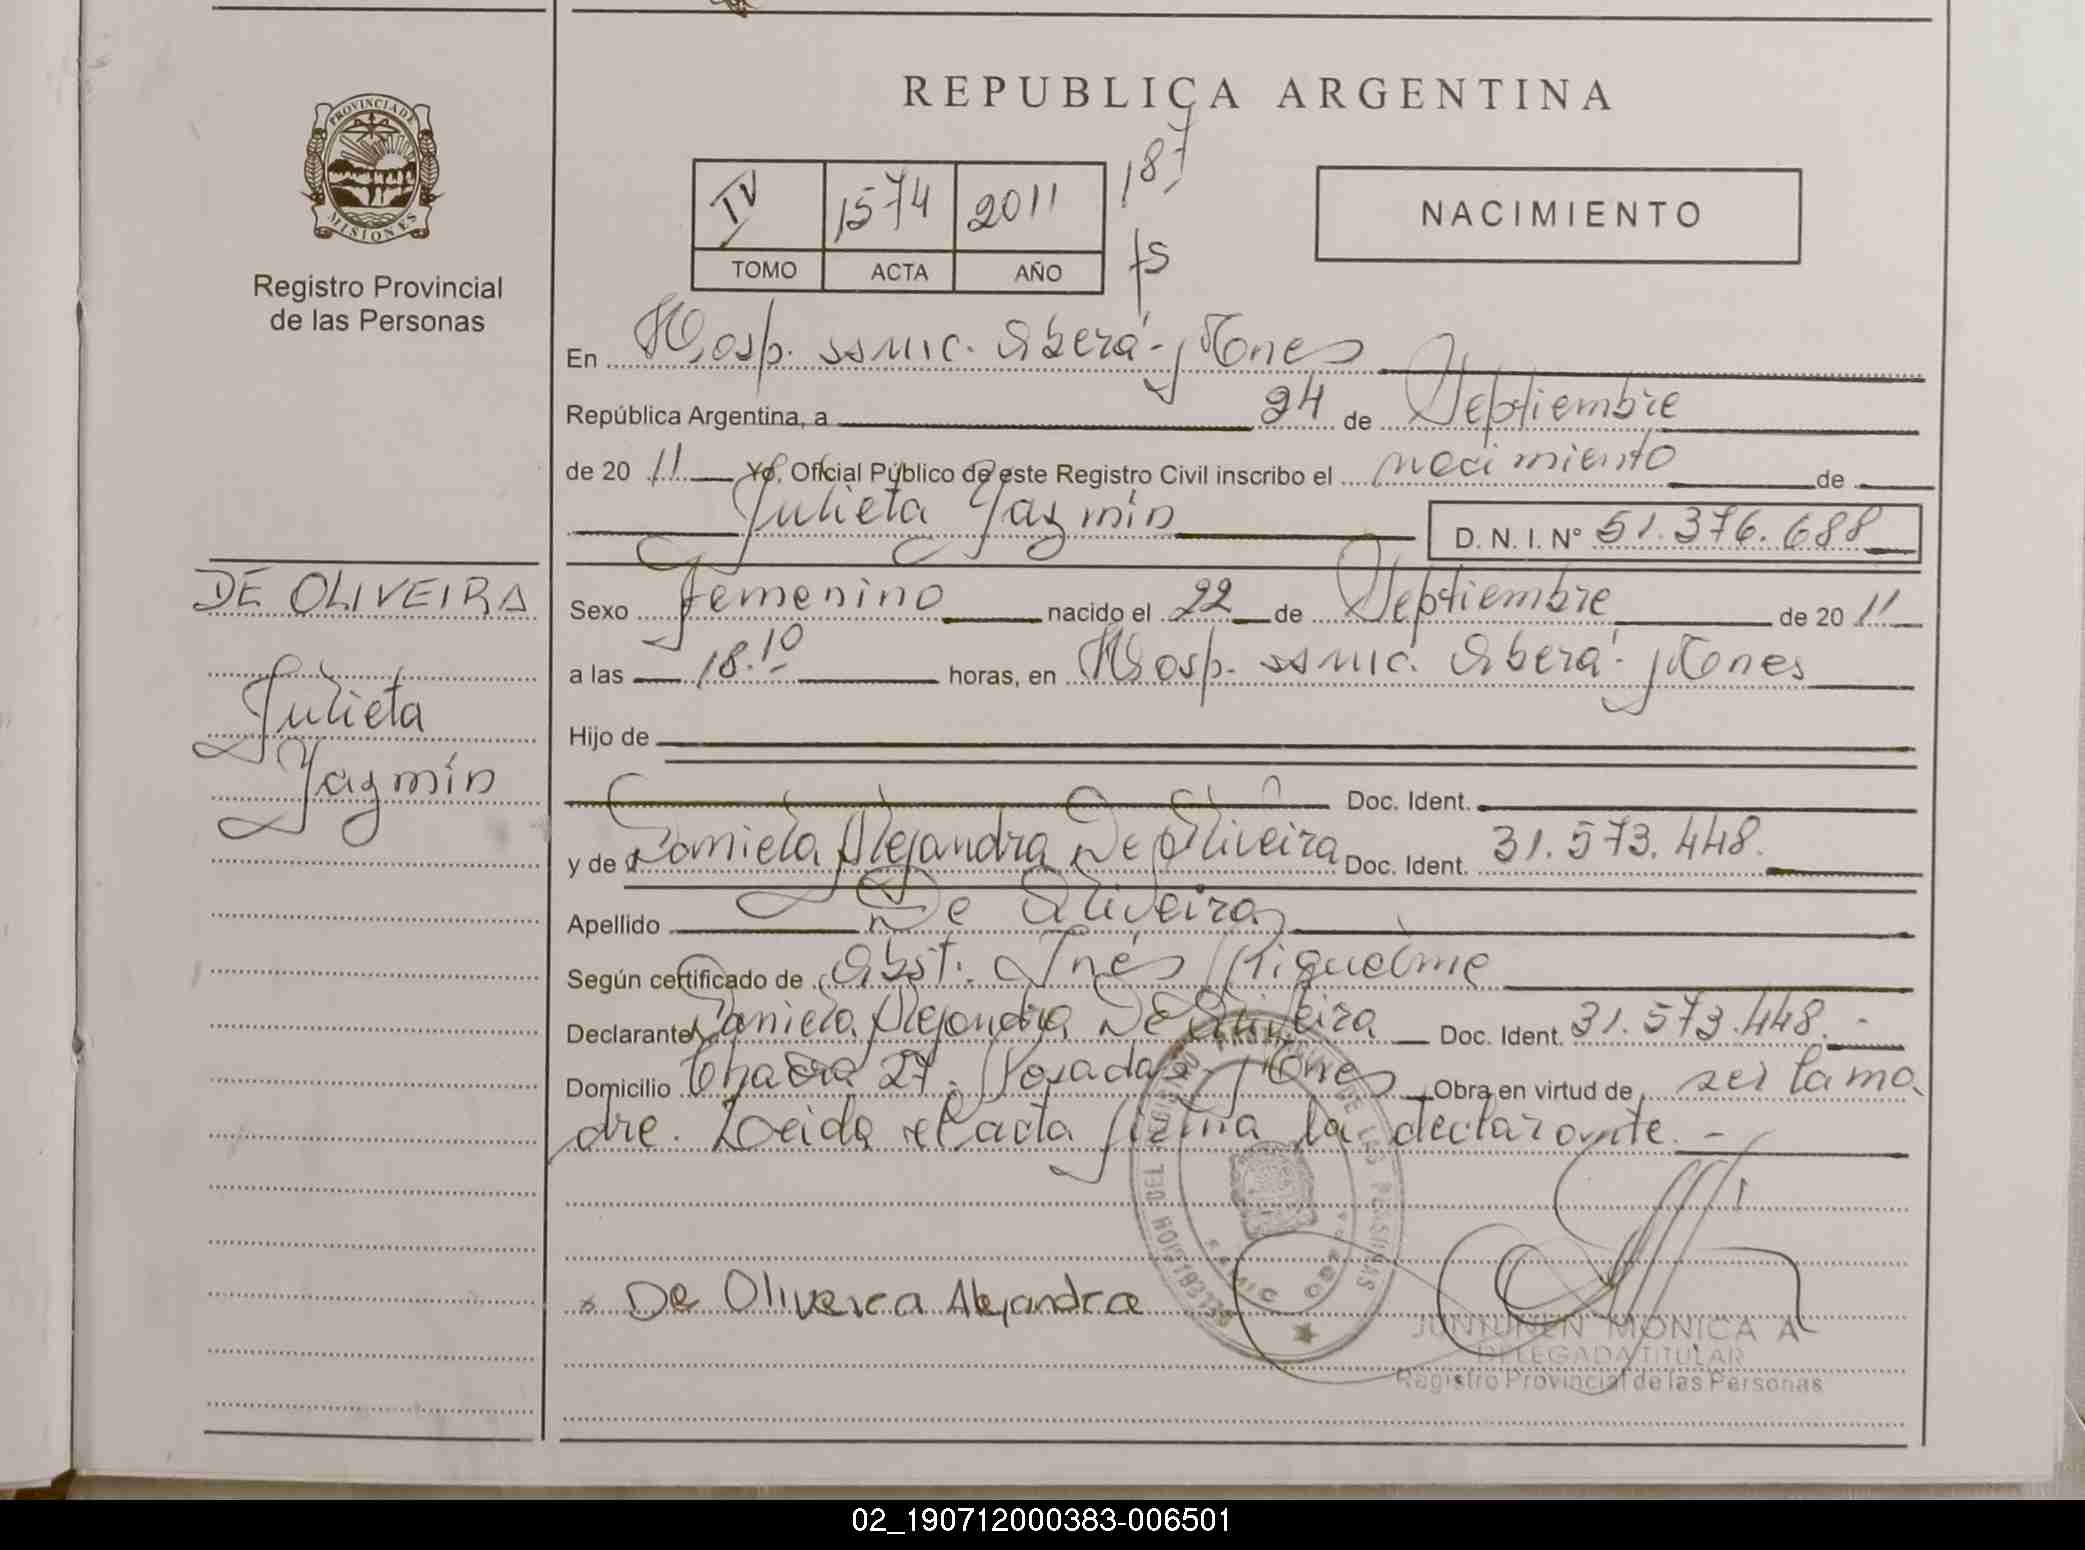 REPUBLICA ARGENTINA
PROVINCIA DE MISIONES
Registro Provincial
de las Personas
IV 1574 2011
TOMO ACTA AÑO
187
fs
NACIMIENTO
En Hosp. SAMIC. Oberá - Mones
República Argentina, a 24 de Septiembre
de 2011 Yo, Oficial Público de este Registro Civil inscribo el nacimiento de
Julieta Yazmín D. N. I. Nº 51.376.688
DE OLIVEIRA
Julieta
Yazmín
Sexo femenino nacido el 22 de Septiembre de 2011
a las 18.10 horas, en Hosp. SAMIC. Oberá - Mones
Hijo de
Doc. Ident.
y de Daniela Alejandra De Oliveira Doc. Ident. 31.573.448.
Apellido De Oliveira
Según certificado de Obst. Inés Riquelme
Declarante Daniela Alejandra De Oliveira Doc. Ident. 31.573.448.-
Domicilio Chacra 27. Posadas - Mones Obra en virtud de ser la ma
dre. Leída el acta firma la declarante. -
De Oliveira Alejandra
JUNTUNEN MONICA A
DELEGADA TITULAR
Registro Provincial de las Personas
02_190712000383-006501